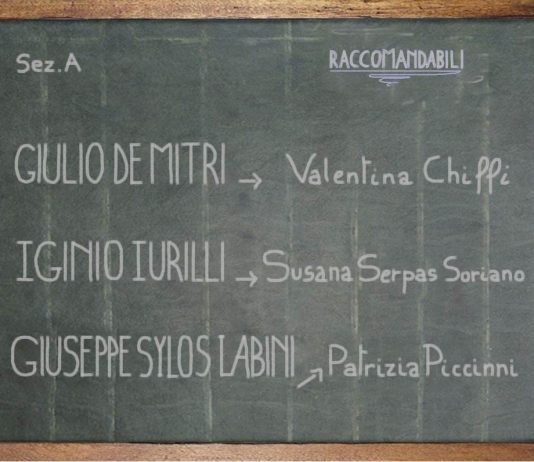 Sez.A RACCOMANDABILI
GIULIO DE MITRI → Valentina Chiffi
IGINIO IURILLI → Susana Serpas Soriano
GIUSEPPE SYLOS LABINI → Patrizia Piccinni